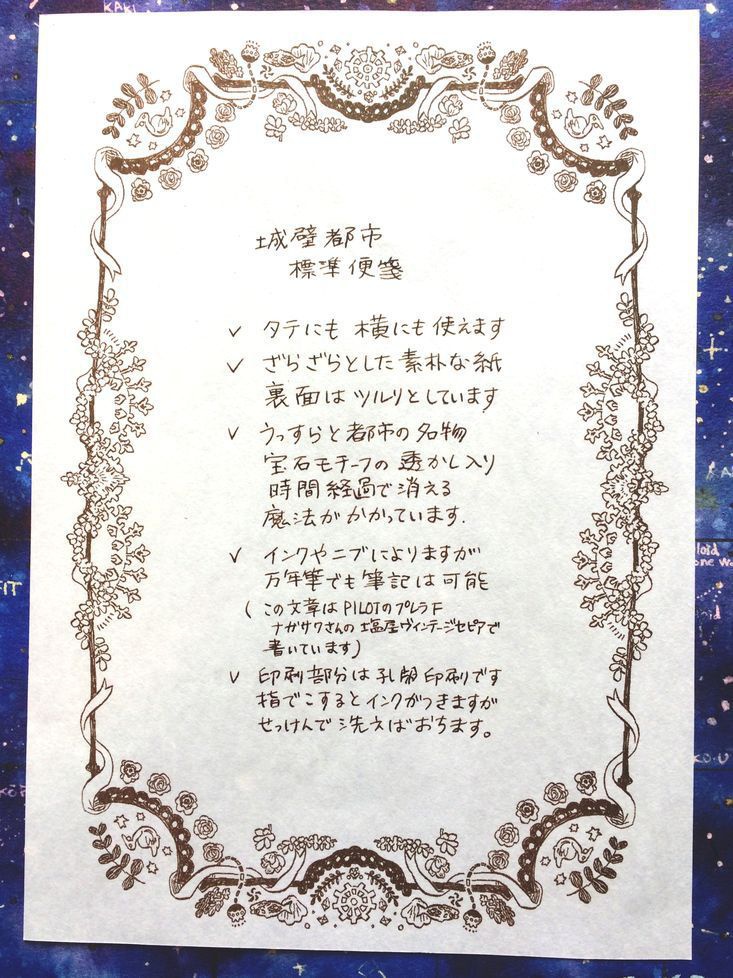 城壁都市
標準便箋
✓ タテにも横にも使えます
✓ ざらざらとした素朴な紙
裏面はツルリとしています
✓ うっすらと都市の名物
宝石モチーフの透かし入り
時間経過で消える
魔法がかかっています.
✓ インクやニブによりますが
万年筆でも筆記は可能
(この文章はPILOTのプレラF
ナガサワさんの塩屋ヴィンテージセピアで
書いています)
✓ 印刷部分は孔版印刷です
指でこするとインクがつきますが
せっけんで洗えばおちます。